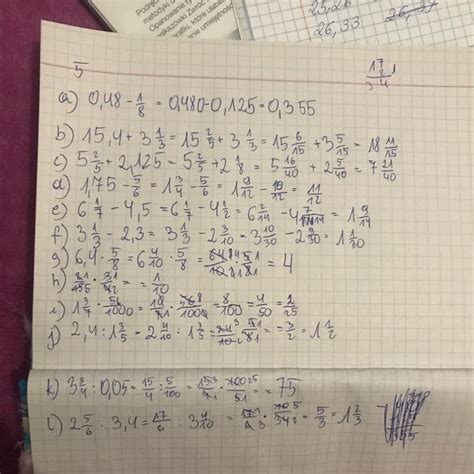 26,33
5
a) 0,48 - 1/8 = 0,480 - 0,125 = 0,355
b) 15,4 + 3 1/3 = 15 2/5 + 3 1/3 = 15 6/15 + 3 5/15 = 18 11/15
c) 5 2/5 + 2,125 = 5 2/5 + 2 1/8 = 5 16/40 + 2 5/40 = 7 21/40
d) 1,75 - 5/6 = 1 3/4 - 5/6 = 1 9/12 - 10/12 = 11/12
e) 6 1/7 - 4,5 = 6 1/7 - 4 1/2 = 6 2/14 - 4 7/14 = 1 9/14
f) 3 1/3 - 2,3 = 3 1/3 - 2 3/10 = 3 10/30 - 2 9/30 = 1 1/30
g) 6,4 · 5/8 = 6 4/10 · 5/8 = = 4
h) = 1/10
i) 1 3/7 · 56/1000 = = 8/100 = 4/50 = 2/25
j) 2,4 : 1 3/5 = 2 4/10 : 1 3/5 = = 3/2 = 1 1/2
k) 3 3/4 : 0,05 = 15/4 : 5/100 = = 75
l) 2 5/6 : 3,4 = 17/6 : 3 4/10 = = 5/3 = 1 2/3